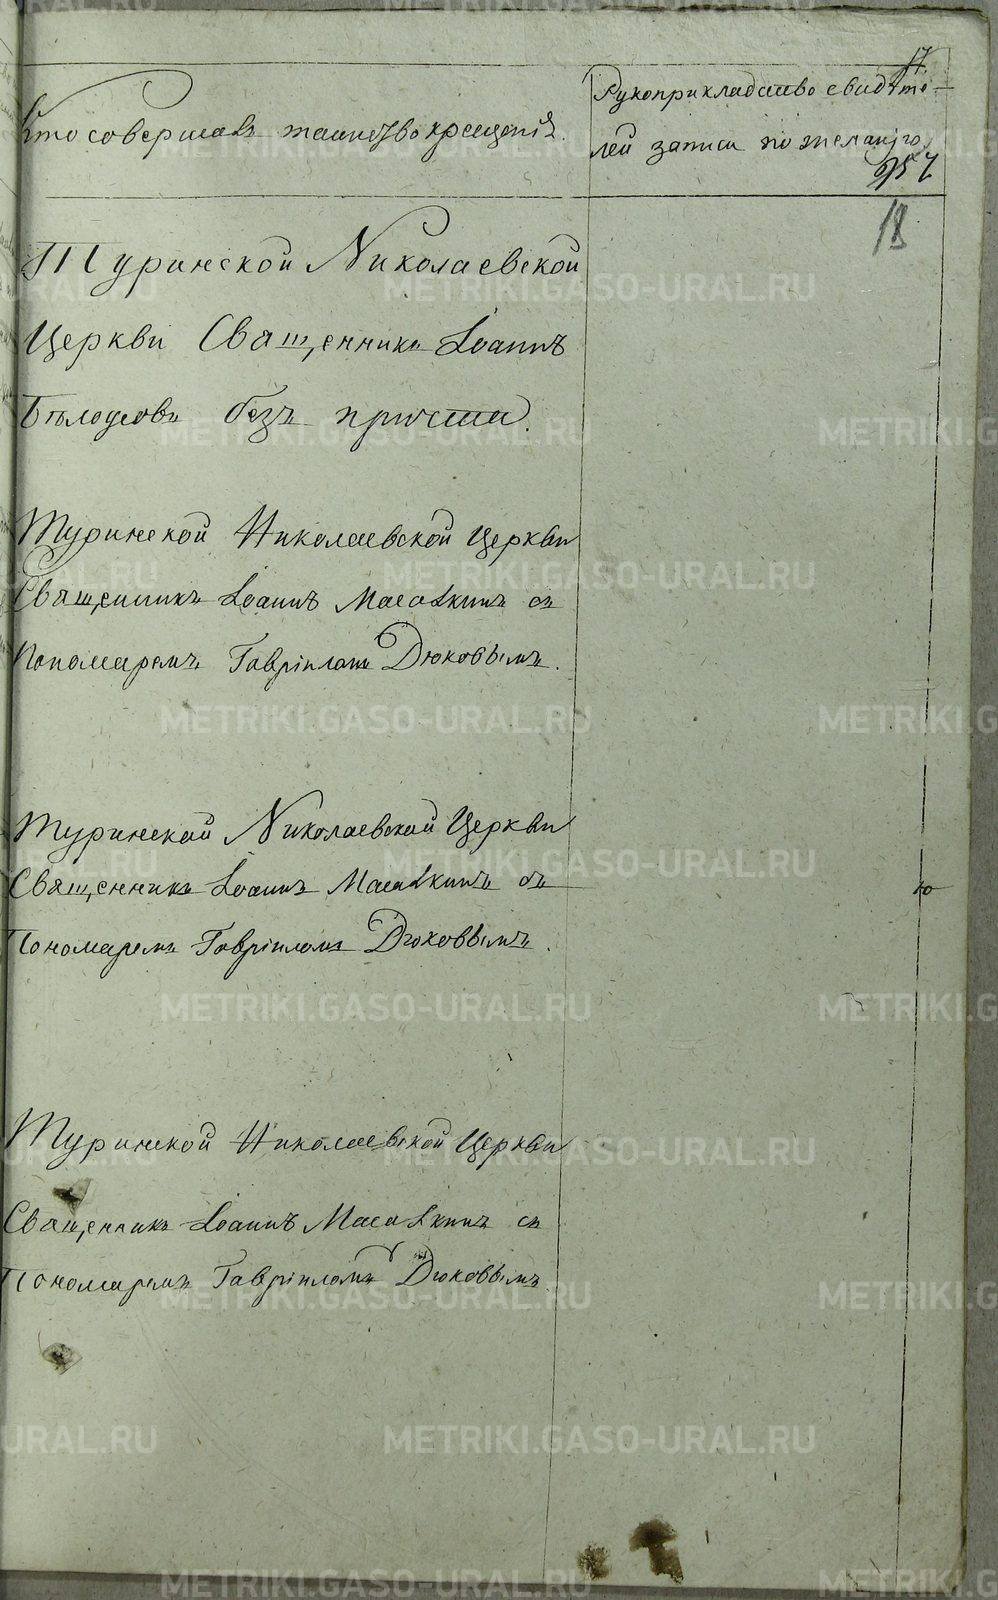 17.
Кто совершалъ таинство крещенія.
Рукоприкладство свидѣте-
лей записи по желанію.
257
18
Туринской Николаевской
Церкви Священникъ Іоаннъ
безъ причта.
Туринской Николаевской Церкви
Священникъ Іоаннъ съ
Пономаремъ Гавріиломъ Дюковымъ.
Туринской Николаевской Церкви
Священникъ Іоаннъ съ
Пономаремъ Гавріиломъ Дюковымъ.
Туринской Николаевской Церкви
Священникъ Іоаннъ съ
Пономаремъ Гавріиломъ Дюковымъ.
METRIKI.GASO-URAL.RU